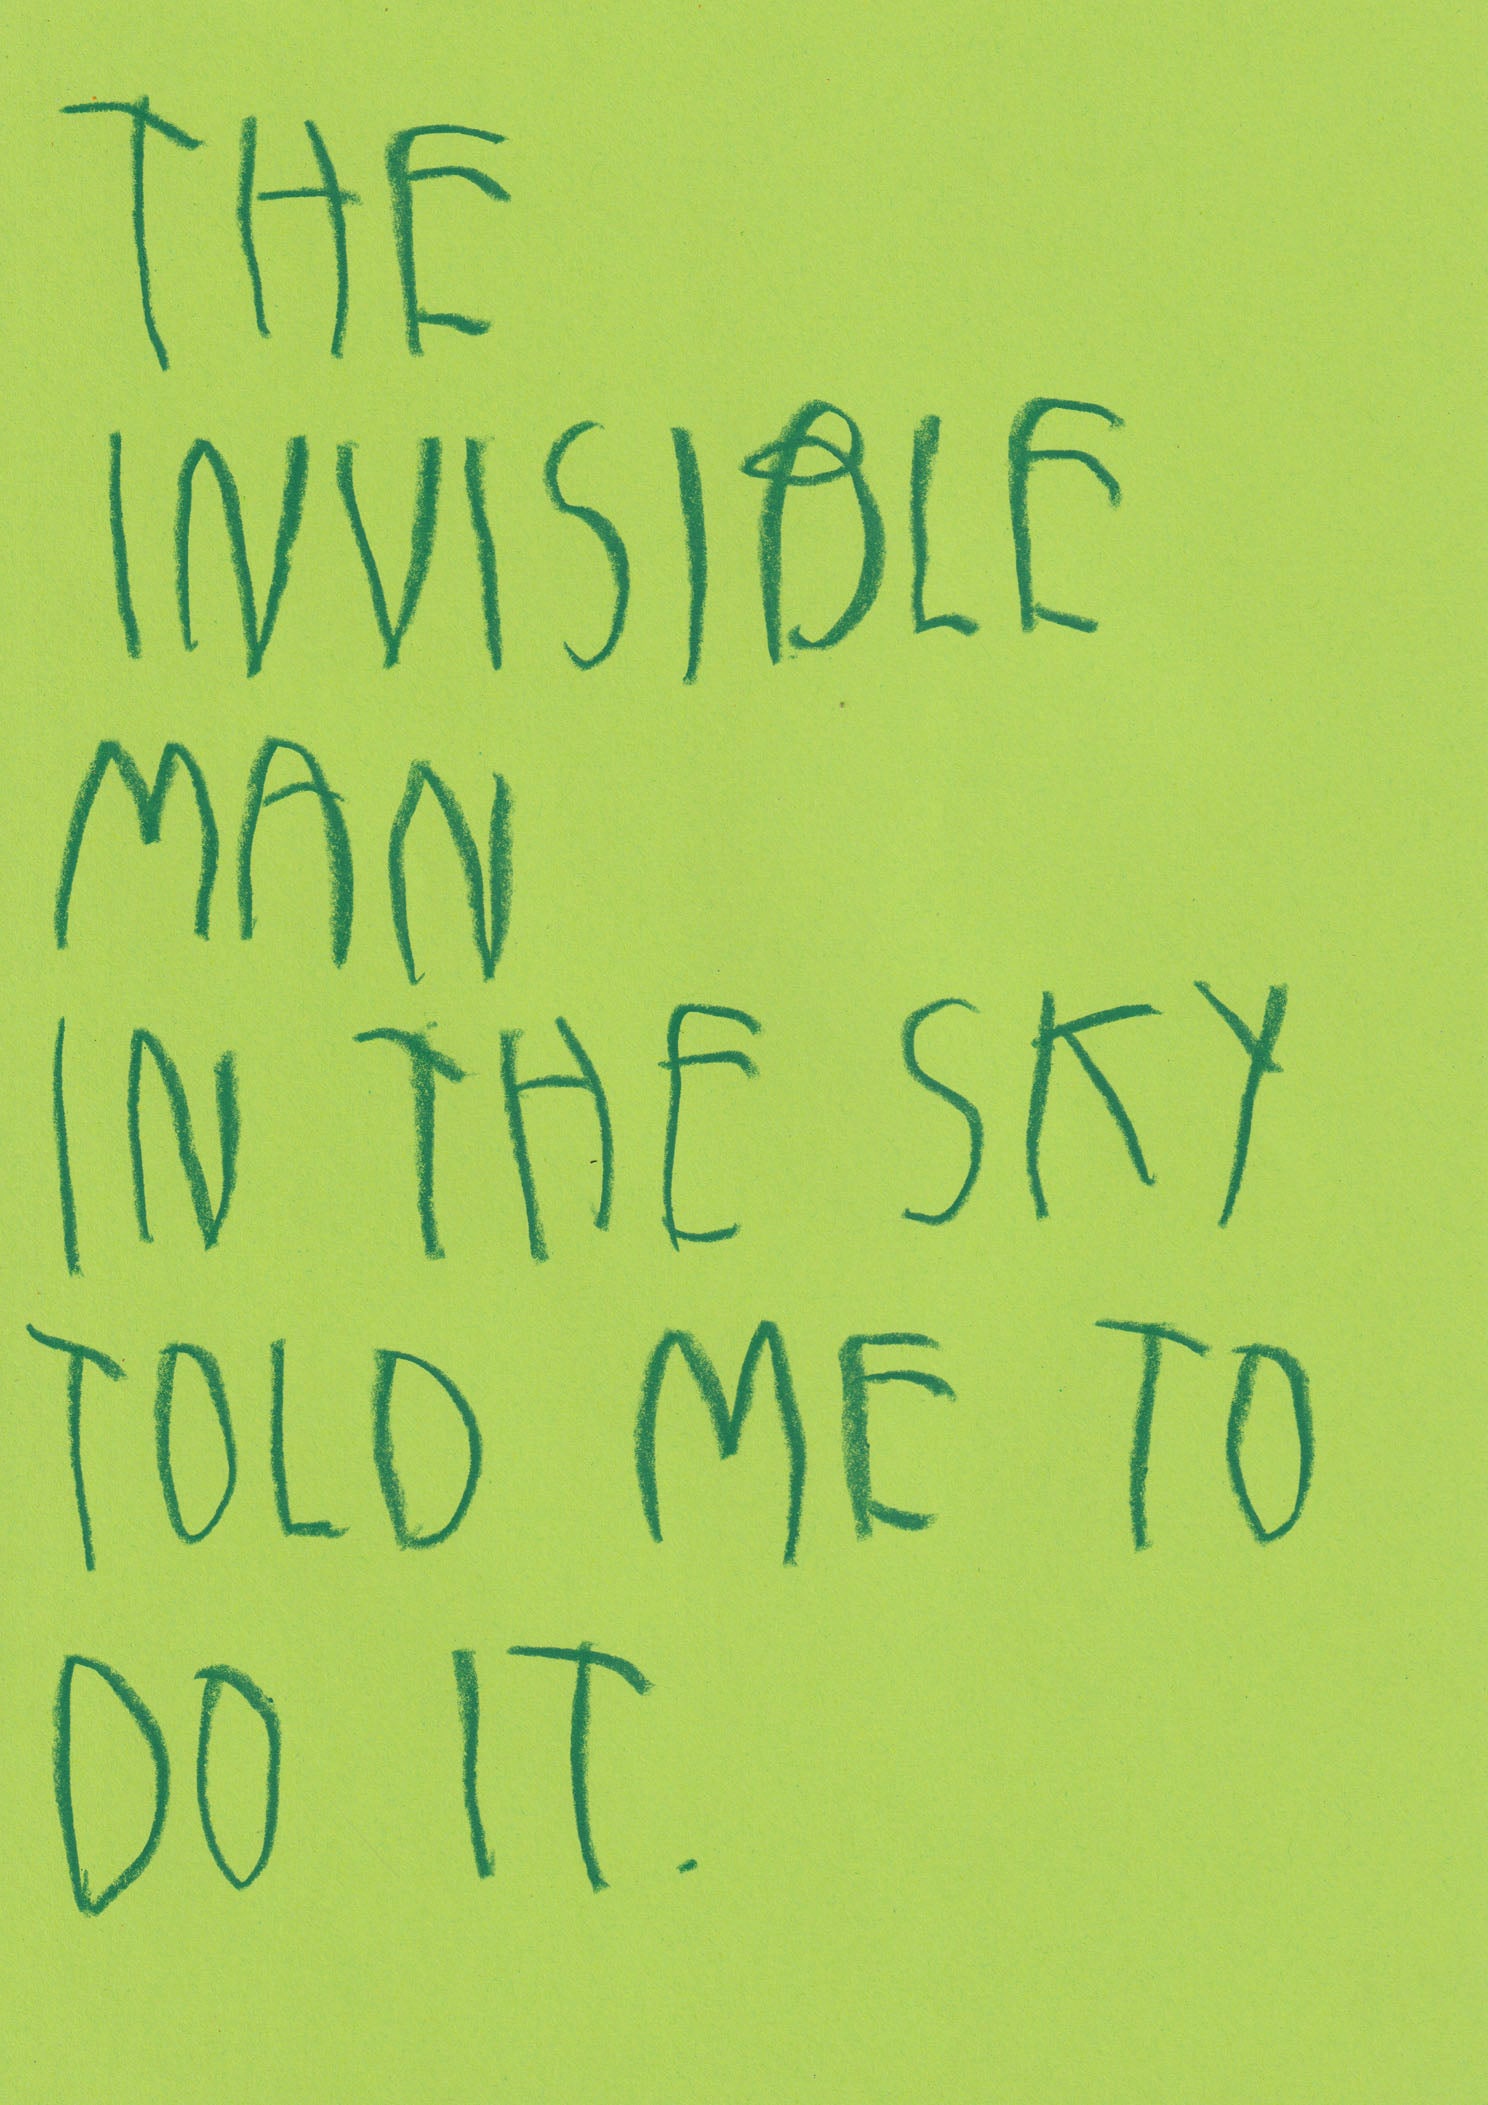 THE
INVISIBLE
MAN
IN THE SKY
TOLD ME TO
DO IT.